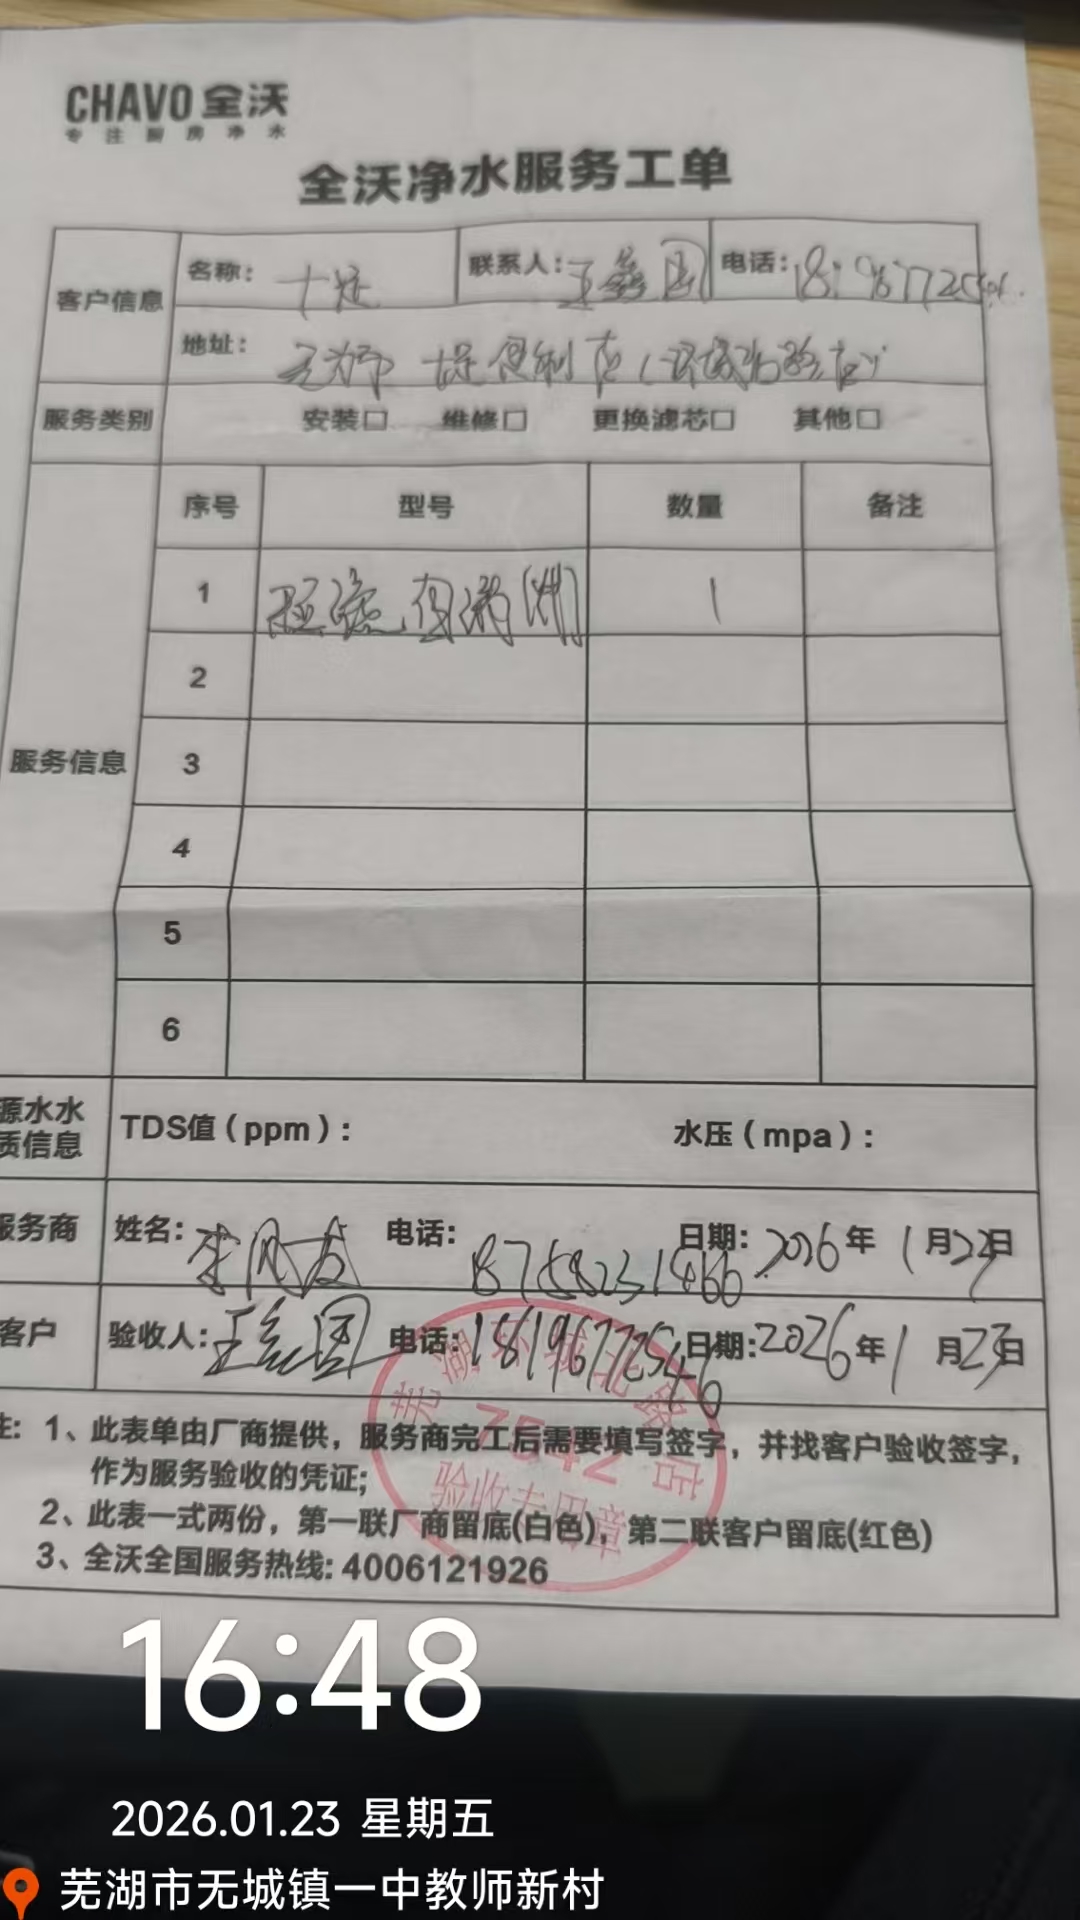 CHAVO 全沃
专注厨房净水
全沃净水服务工单
客户信息 名称: 联系人: 王鑫国 电话:
地址:
服务类别 安装□ 维修□ 更换滤芯□ 其他□
序号 型号 数量 备注
1 1
2
服务信息 3
4
5
6
源水水质信息 TDS值(ppm): 水压(mpa):
服务商 姓名: 电话: 18758231466 日期: 2026年1月23日
客户 验收人: 电话: 18196772546 日期: 2026年1月23日
注: 1、此表单由厂商提供，服务商完工后需要填写签字，并找客户验收签字，
作为服务验收的凭证;
2、此表一式两份，第一联厂商留底(白色)，第二联客户留底(红色)
3、全沃全国服务热线: 4006121926
芜湖环城北路店
7542
验收专用章
16:48
2026.01.23 星期五
芜湖市无城镇一中教师新村